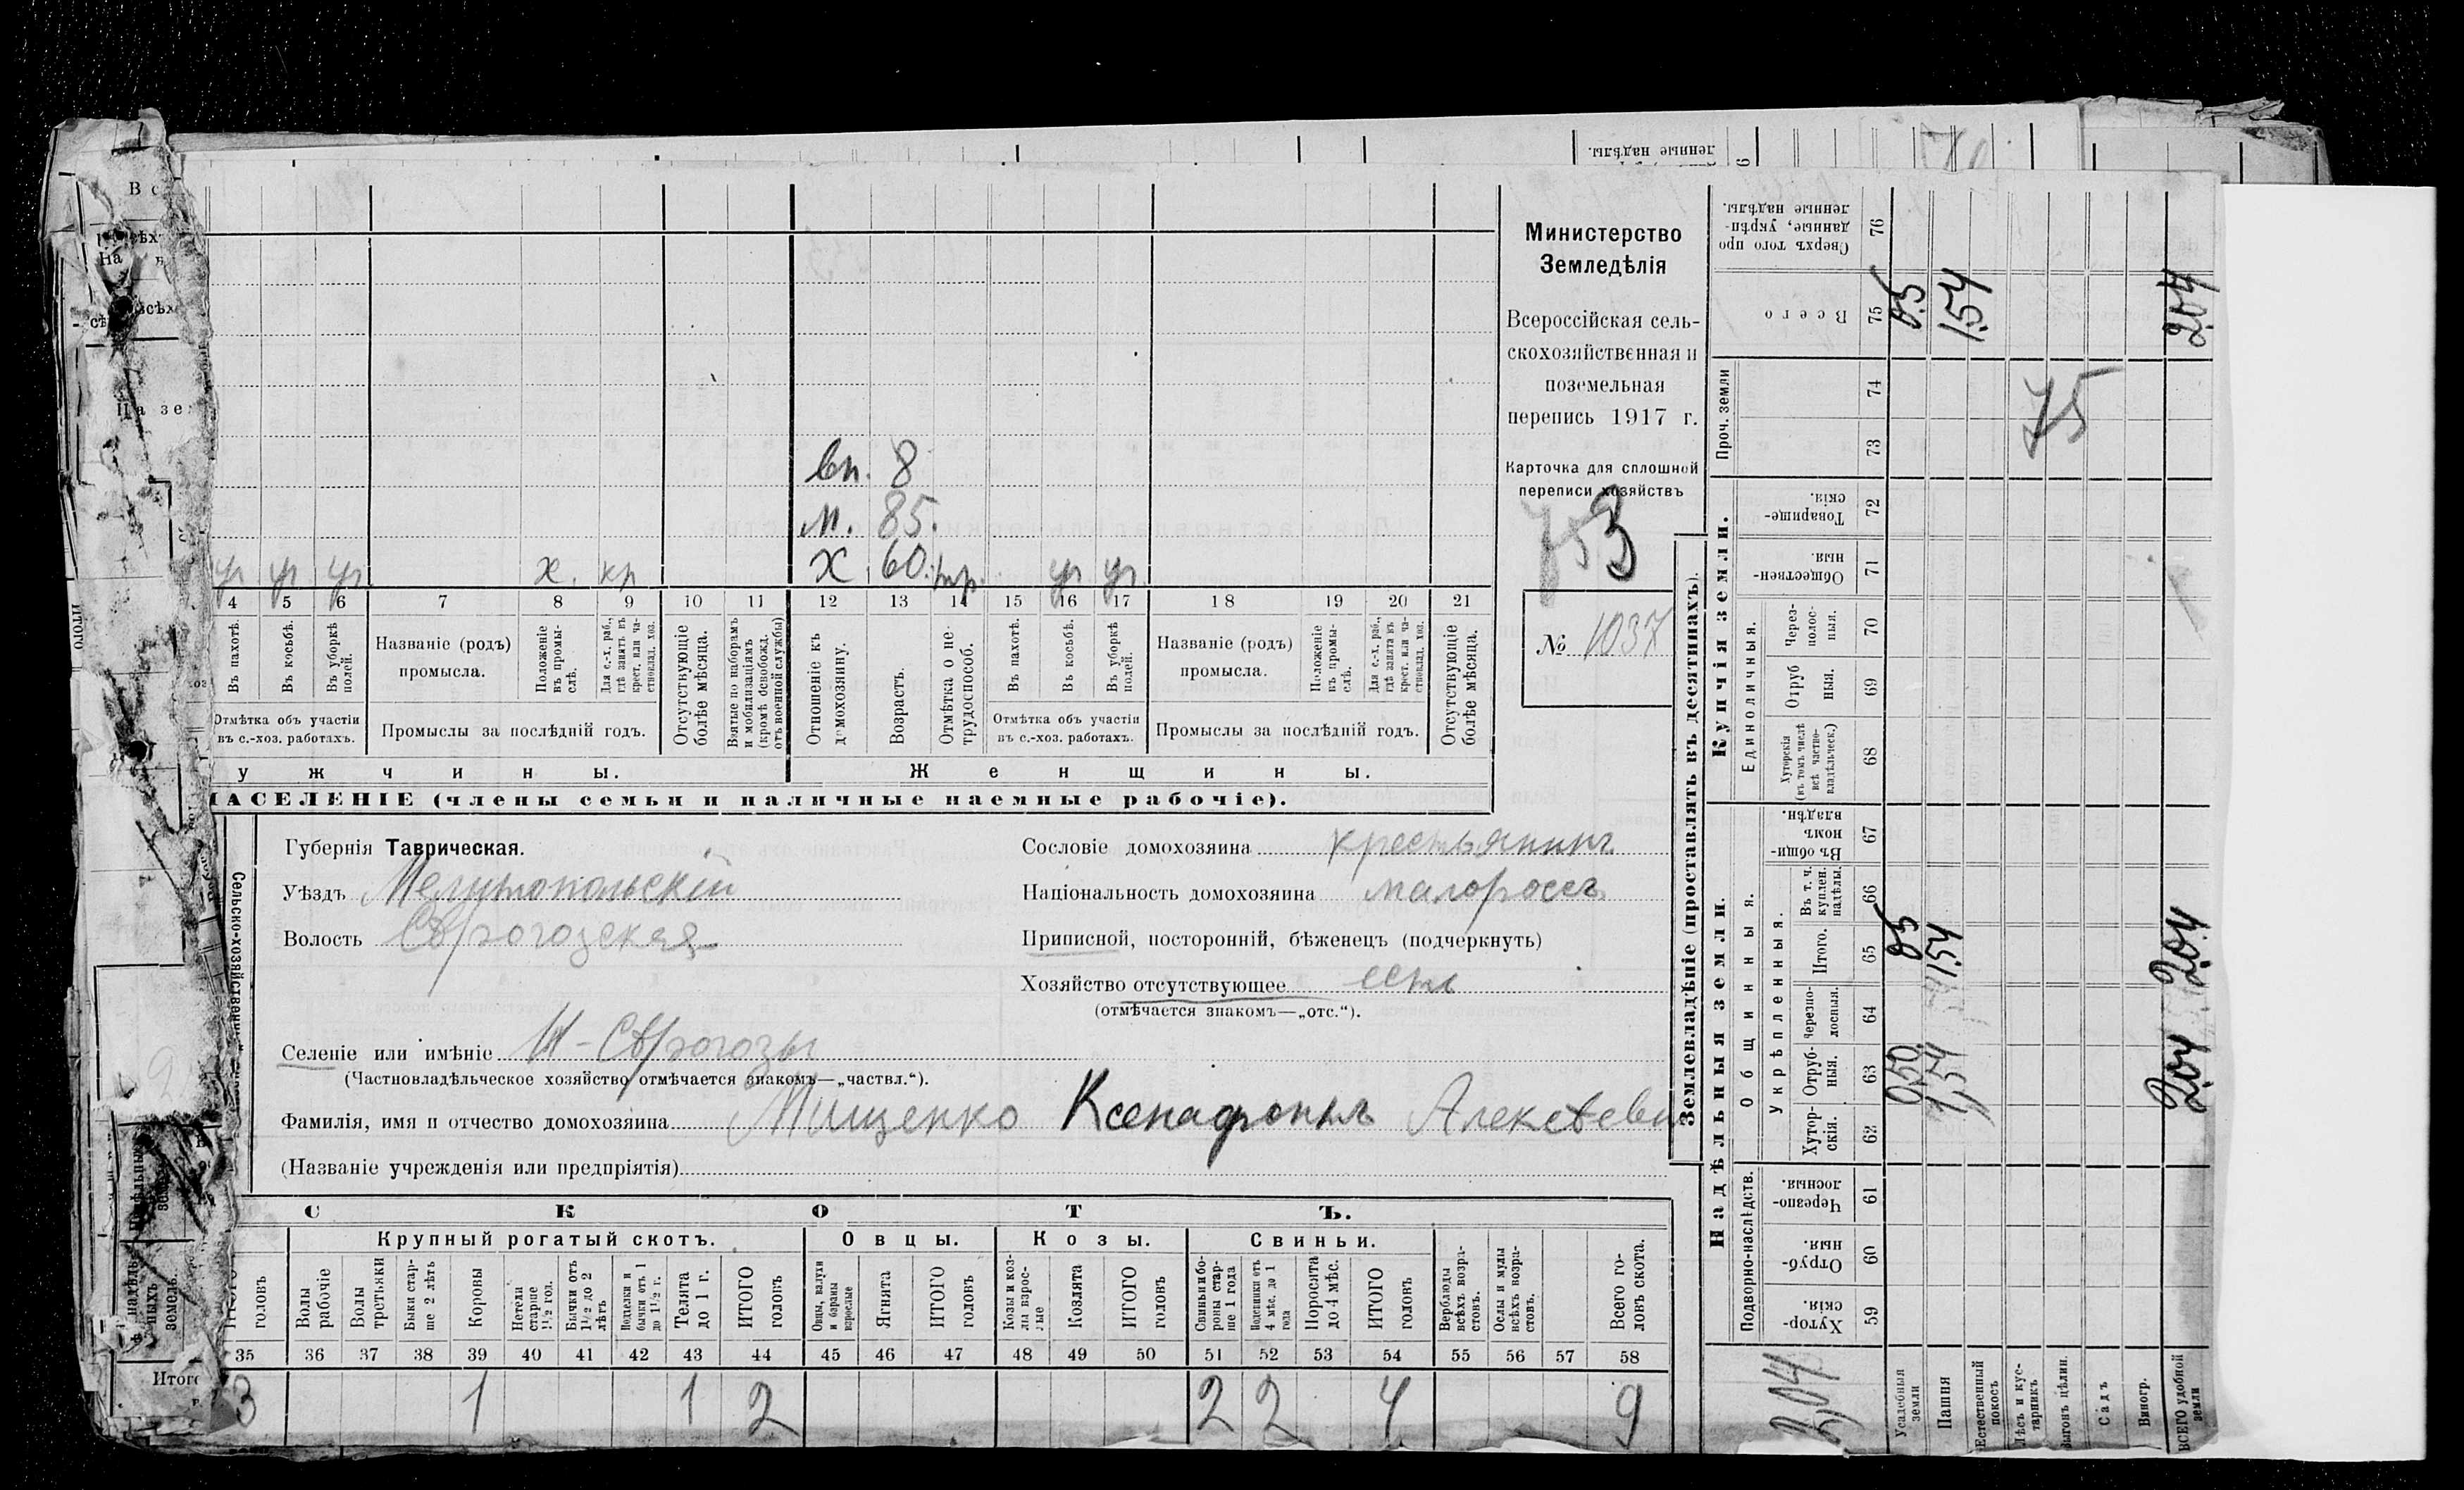 ленные надѣлы.
вп. 8
м. 85.
ур ур ур х. кр х 60. ур ур
4 5 6 7 8 9 10 11 12 13 14 15 16 17 18 19 20 21
Въ пахотѣ.
Въ косьбѣ.
Въ уборкѣ полей.
Названіе (родъ) промысла.
Положеніе въ промыслѣ.
Для с.-х. раб., гдѣ занятъ въ крест. или частновлад. хоз.
Отсутствующіе болѣе мѣсяца.
Взятые по наборамъ и мобилизаціямъ (кромѣ освобожд. отъ военной службы)
Отношеніе къ домохозяину.
Возрастъ.
Отмѣтка о нетрудоспособ.
Въ пахотѣ.
Въ косьбѣ.
Въ уборкѣ полей.
Названіе (родъ) промысла.
Положеніе въ промыслѣ.
Для с.-х. раб., гдѣ занятъ въ крест. или частновлад. хоз.
Отсутствующіе болѣе мѣсяца.
Отмѣтка объ участіи въ с.-хоз. работахъ.
Промыслы за послѣдній годъ.
Отмѣтка объ участіи въ с.-хоз. работахъ.
Промыслы за послѣдній годъ.
у ж ч и н ы.
Ж е н щ и н ы.
НАСЕЛЕНІЕ (члены семьи и наличные наемные рабочіе).
Министерство
Земледѣлія
Всероссійская сель-
скохозяйственная и
поземельная
перепись 1917 г.
Карточка для сплошной
переписи хозяйствъ
753
№ 1037
Губернія Таврическая.
Уѣздъ Мелитопольскій
Волость
Сословіе домохозяина крестьянинъ
Національность домохозяина малороссъ
Приписной, посторонній, бѣженецъ (подчеркнуть)
Хозяйство отсутствующее есть
(отмѣчается знакомъ—„отс.“).
Селеніе или имѣніе
(Частновладѣльческое хозяйство отмѣчается знакомъ—„частвл.“).
Фамилія, имя и отчество домохозяина Мищенко Ксенафонтъ Алексѣеви
(Названіе учрежденія или предпріятія)
С К О Т Ъ.
Крупный рогатый скотъ.
Овцы.
Козы.
Свиньи.
головъ
Волы рабочіе
Волы третьяки
Быки старше 2 лѣтъ
Коровы
Нетели старше 1½ год.
Бычки отъ 1½ до 2 лѣтъ
Телята до 1 г.
ИТОГО головъ
Овцы, валухи и бараны взрослые
Ягнята
ИТОГО головъ
Козы и козлы взрослые
Козлята
ИТОГО головъ
Свиньи и бороны старше 1 года
Подсвинки отъ 4 мѣс. до 1 года
Поросята до 4 мѣс.
ИТОГО головъ
Верблюды всѣхъ возрастовъ.
Ослы и мулы всѣхъ возрастовъ.
Всего головъ скота.
35 36 37 38 39 40 41 42 43 44 45 46 47 48 49 50 51 52 53 54 55 56 57 58
3 1 1 2 2 2 4 9
Землевладѣніе (проставлять въ десятинахъ).
Надѣльныя земли.
Купчія земли.
Подворно-наслѣдств.
Общинныя.
Укрѣпленныя.
Единоличныя.
Проч. земли
Хуторскія. 59
Отрубныя. 60
Черезполосныя. 61
Хуторскія. 62
Отрубныя. 63
Черезполосныя. 64
Итого. 65
Въ т. ч. куплен. надѣлы. 66
Въ общинномъ владѣн. 67
Хуторскія (въ томъ числѣ всѣ частновладѣльческ.) 68
Отрубныя. 69
Черезполосныя. 70
Общественныя. 71
Товарищескія. 72
73
74
Всего 75
Сверхъ того проданные, укрѣпленные надѣлы. 76
2,04
Усадебныя земли 0,50 0,5 0,5
Пашня 1,54 1,54 1,54
Естественный покосъ
Лѣсъ и кустарникъ
Выгонъ цѣлин.
Садъ
Виногр.
ВСЕГО удобной земли 2,04 2,04 2,04
75